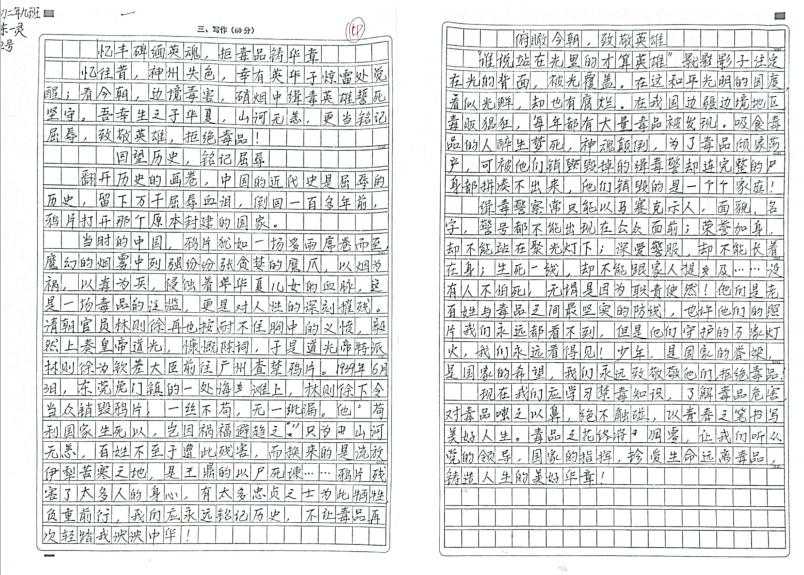 初二年九班
三、写作(60分)
忆丰碑缅英魂,拒毒品铸华章
忆往昔,神州失色,幸有英华子惊雷处觉
醒;看今朝,边境毒害,硝烟中缉毒英雄誓死
坚守。吾辈生之于华夏,山河无恙,更当铭记
屈辱,致敬英雄,拒绝毒品!
回望历史,铭记屈辱
翻开历史的画卷,中国的近代史是屈辱的
历史,留下万千屈辱血泪,倒回一百多年前,
鸦片打开那个原本封建的国家。
当时的中国,鸦片犹如一场暴雨席卷而至,
魔幻的烟雾中列强纷纷张贪婪的魔爪,以烟为
祸,以毒为买,侵蚀着华华夏儿女的血脉,这
是一场毒品的泛滥,更是对人性的深刻摧残。
清朝官员林则徐再也按耐不住胸中的义愤,毅
然上奏皇帝道光,慷慨陈词,于是道光帝特派
林则徐为钦差大臣前往广州查禁鸦片。1939年6月
3日,东莞虎门镇的一处海滩上,林则徐下令
当众销毁鸦片,一丝不苟,无一纰漏。他"苟
利国家生死以,岂因祸福避趋之。"只为山河
无恙,百姓不至于遭此残害,而换来的是流放
伊犁苦寒之地,是王鼎的以尸死谏……鸦片残
害了太多人的身心,有太多忠贞之士为此牺牲
负重前行,我们应永远铭记历史,不让毒品再
次轻踏我泱泱中华!
俯瞰今朝,致敬英雄
"谁说站在光里的才算英雄"影影影子注定
在光的背面,被光覆盖。在这和平光明的国度,
看似光鲜,却也有腐烂。在我国边疆边境地区
毒贩猖狂,每年都有大量毒品被发现。吸食毒
品的人醉生梦死,神魂颠倒,为了毒品倾家荡
产,可被他们销毁毁掉的缉毒警却连完整的尸
身都拼凑不出来,他们销毁的是一个个家在!
缉毒警察常只能以马赛克示人,面貌、名
字,警号都不能出现在公众面前;荣誉加身,
却不能站在聚光灯下;深爱警服,却不能长着
在身;生死一线,却不能跟家人提及……没
有人不怕死,无惧是因为职责使然!他们是老
百姓与毒品之间最坚实的防线,也许他们的照
片我们永远都看不到,但是他们守护的万家灯
火,我们永远看得见!少年,是国家的脊梁,
是国家的希望,我们永远致敬他们拒绝毒品!
现在我们应学习禁毒知识,了解毒品危害,
对毒品嗤之以鼻,绝不触碰,以青春之笔书写
美好人生。毒品之花终将凋零,让我们听从
党的领导,国家的指挥,珍爱生命远离毒品,
铸造人生的美好华章!